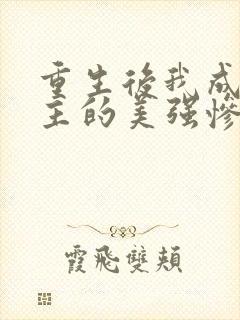 重生後我成
主的美強慘
霞飛雙頰